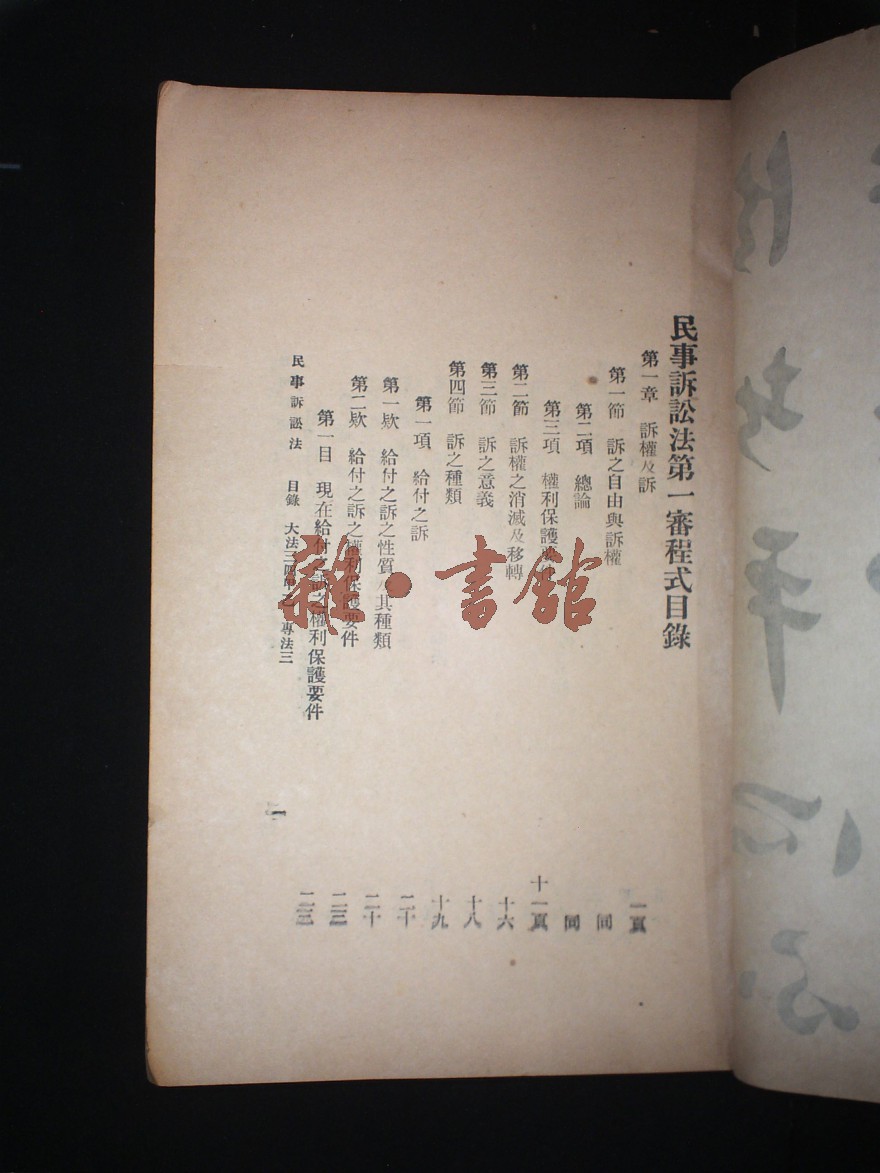 民事訴訟法第一審程式目錄
第一章 訴權及訴 一頁
第一節 訴之自由與訴權 同
第二項 總論 同
第三項 權利保護要 十一頁
第二節 訴權之消滅及移轉 十六
第三節 訴之意義 十八
第四節 訴之種類 十九
第一項 給付之訴 二十
第一欵 給付之訴之性質及其種類 二十
第二欵 給付之訴之權利保護要件 二三
第一目 現在給付之訴之權利保護要件 二三
民事訴訟法 目錄 大法三四 專法三 一
雜·書館